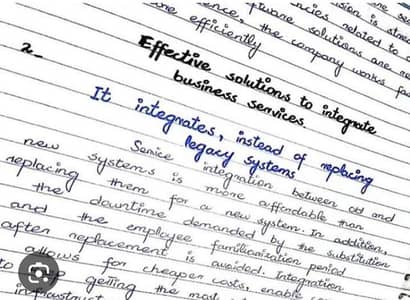 ision is stren
ence, the
tware solutions are m
ncies related to a
one efficiently
the company works fas
2- Effective solutions to integrate
business services.
It integrates, instead of replacing
legacy systems
Service integration between old and
new systems is more affordable than
replacing them for a new system. In addition,
the downtime demanded by the substitution
and the employee familiarization period
after replacement is avoided. Integration
allows for cheaper costs, enable
to getting the most
infrastruct